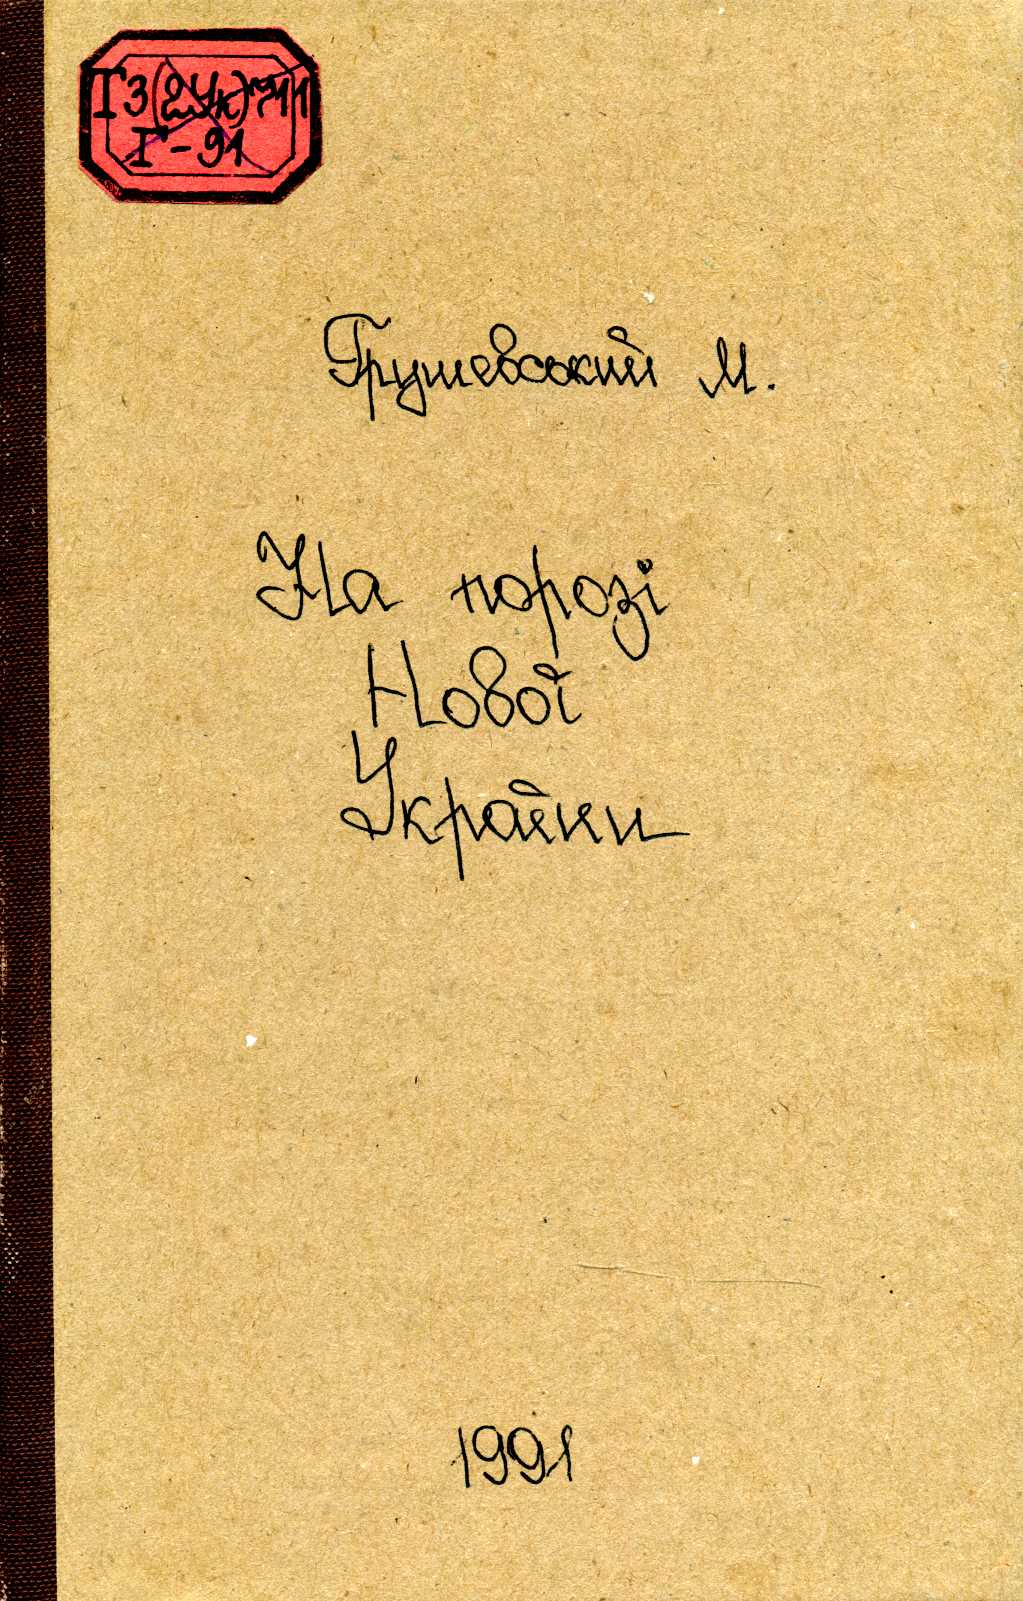 Т3(2Ук)711
Г-91
Грушевський М.
На порозі
Нової
України
1991